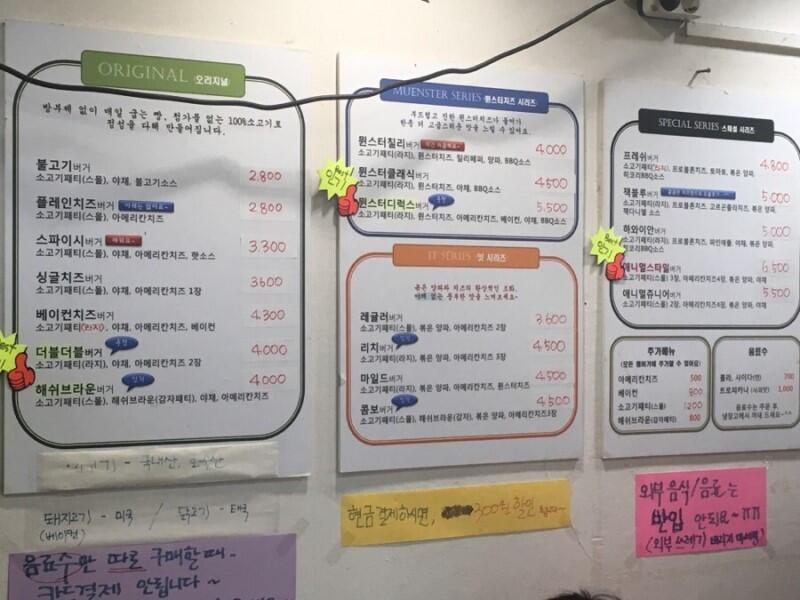 ORIGINAL (오리지널)
방부제 없이 매일 굽는 빵, 첨가물 없는 100%소고기로
정성을 다해 만들어집니다.
불고기버거 2,800
소고기패티(스몰), 야채, 불고기소스
플레인치즈버거 야채는 없어요~ 2800
소고기패티(스몰), 아메리칸치즈
스파이시버거 매워요~ 3.300
소고기패티(스몰), 야채, 아메리칸치즈, 핫소스
싱글치즈버거 3600
소고기패티(스몰), 야채, 아메리칸치즈 1장
베이컨치즈버거 4.300
소고기패티(라지), 야채, 아메리칸치즈, 베이컨
더블더블버거 4000
소고기패티(스몰), 야채, 아메리칸치즈 2장
해쉬브라운버거 4000
소고기패티(스몰), 해쉬브라운(감자패티), 야채, 아메리칸치즈
- 국내산,
돼지고기 - 미국 / 닭고기 - 태국
(베이컨)
음료수만 따로 구매할때..
카드결제 안됩니다~
MUENSTER SERIES (뮌스터치즈 시리즈)
부드럽고 진한 뮌스터치즈가 들어가
한층 더 고급스러운 맛을 느낄 수 있어요.
뮌스터칠리버거 4.000
소고기패티(라지), 뮌스터치즈, 칠리페퍼, 양파, BBQ소스
Best 인기
뮌스터클래식버거 4500
소고기패티(라지), 뮌스터치즈, 야채, BBQ소스
뮌스터디럭스버거 5.500
소고기패티(라지), 뮌스터치즈, 아메리칸치즈, 베이컨, 야채, BBQ소스
IT SERIES 잇 시리즈
볶은 양파와 치즈의 환상적인 조화,
야채 없는 풍부한 맛을 느껴보세요~
레귤러버거 3.600
소고기패티(스몰), 볶은 양파, 아메리칸치즈 2장
리치버거 4500
소고기패티(라지), 볶은 양파, 아메리칸치즈 3장
마일드버거 4.500
소고기패티(라지), 볶은 양파, 아메리칸치즈, 뮌스터치즈
콤보버거 4500
소고기패티(스몰), 해쉬브라운(감자), 볶은 양파, 아메리칸치즈3장
현금결제하시면, 300원 할인
SPECIAL SERIES 스페셜 시리즈
프레쉬버거 4.800
소고기패티(라지), 프로볼론치즈, 토마토, 볶은 양파,
히코리BBQ소스
잭블루버거 5.000
소고기패티(라지), 프로볼론치즈, 고르곤졸라치즈, 볶은 양파,
잭다니엘 소스
하와이안버거 5.000
소고기패티(라지), 프로볼론치즈, 파인애플, 야채, 볶은 양파,
히코리BBQ소스
Best 인기
애니멀스타일버거 6.500
소고기패티(스몰) 3장, 아메리칸치즈4장, 볶은 양파, 야채
애니멀쥬니어버거 5.500
소고기패티(스몰) 2장, 아메리칸치즈4장, 볶은 양파, 야채
추가메뉴
(모든 햄버거에 추가할 수 있어요)
아메리칸치즈 500
베이컨 800
소고기패티(스몰) 1200
해쉬브라운(감자패티) 800
음료수
콜라, 사이다(캔) 700
트로피카나 (사과맛) 1,000
음료수는 주문 후,
냉장고에서 꺼내 드세요~^^
외부 음식/음료는
반입 안되요~ㅠㅠ
(외부 쓰레기 버리지 마세요)